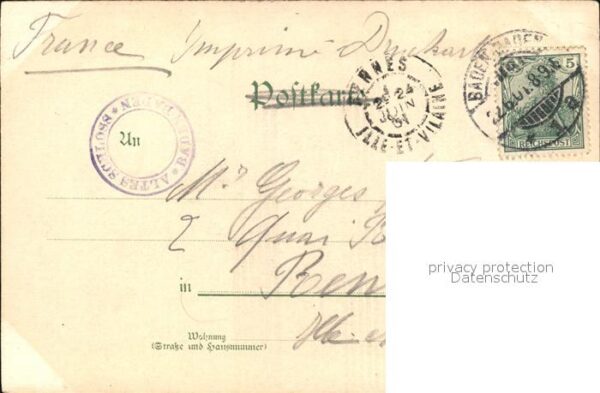 France Imprimé Drucksache
Postkarte
RENNES
24
JUIN
01
ILLE-ET-VILAINE
BADEN-BADEN
22.6.01.8-9N.
5
REICHSPOST
ALTES SCHLOSS * BADEN BADEN *
An
Mr Georges
2 Quai
in
Ren
Wohnung
(Straße und Hausnummer)
Ille e
privacy protection
Datenschutz